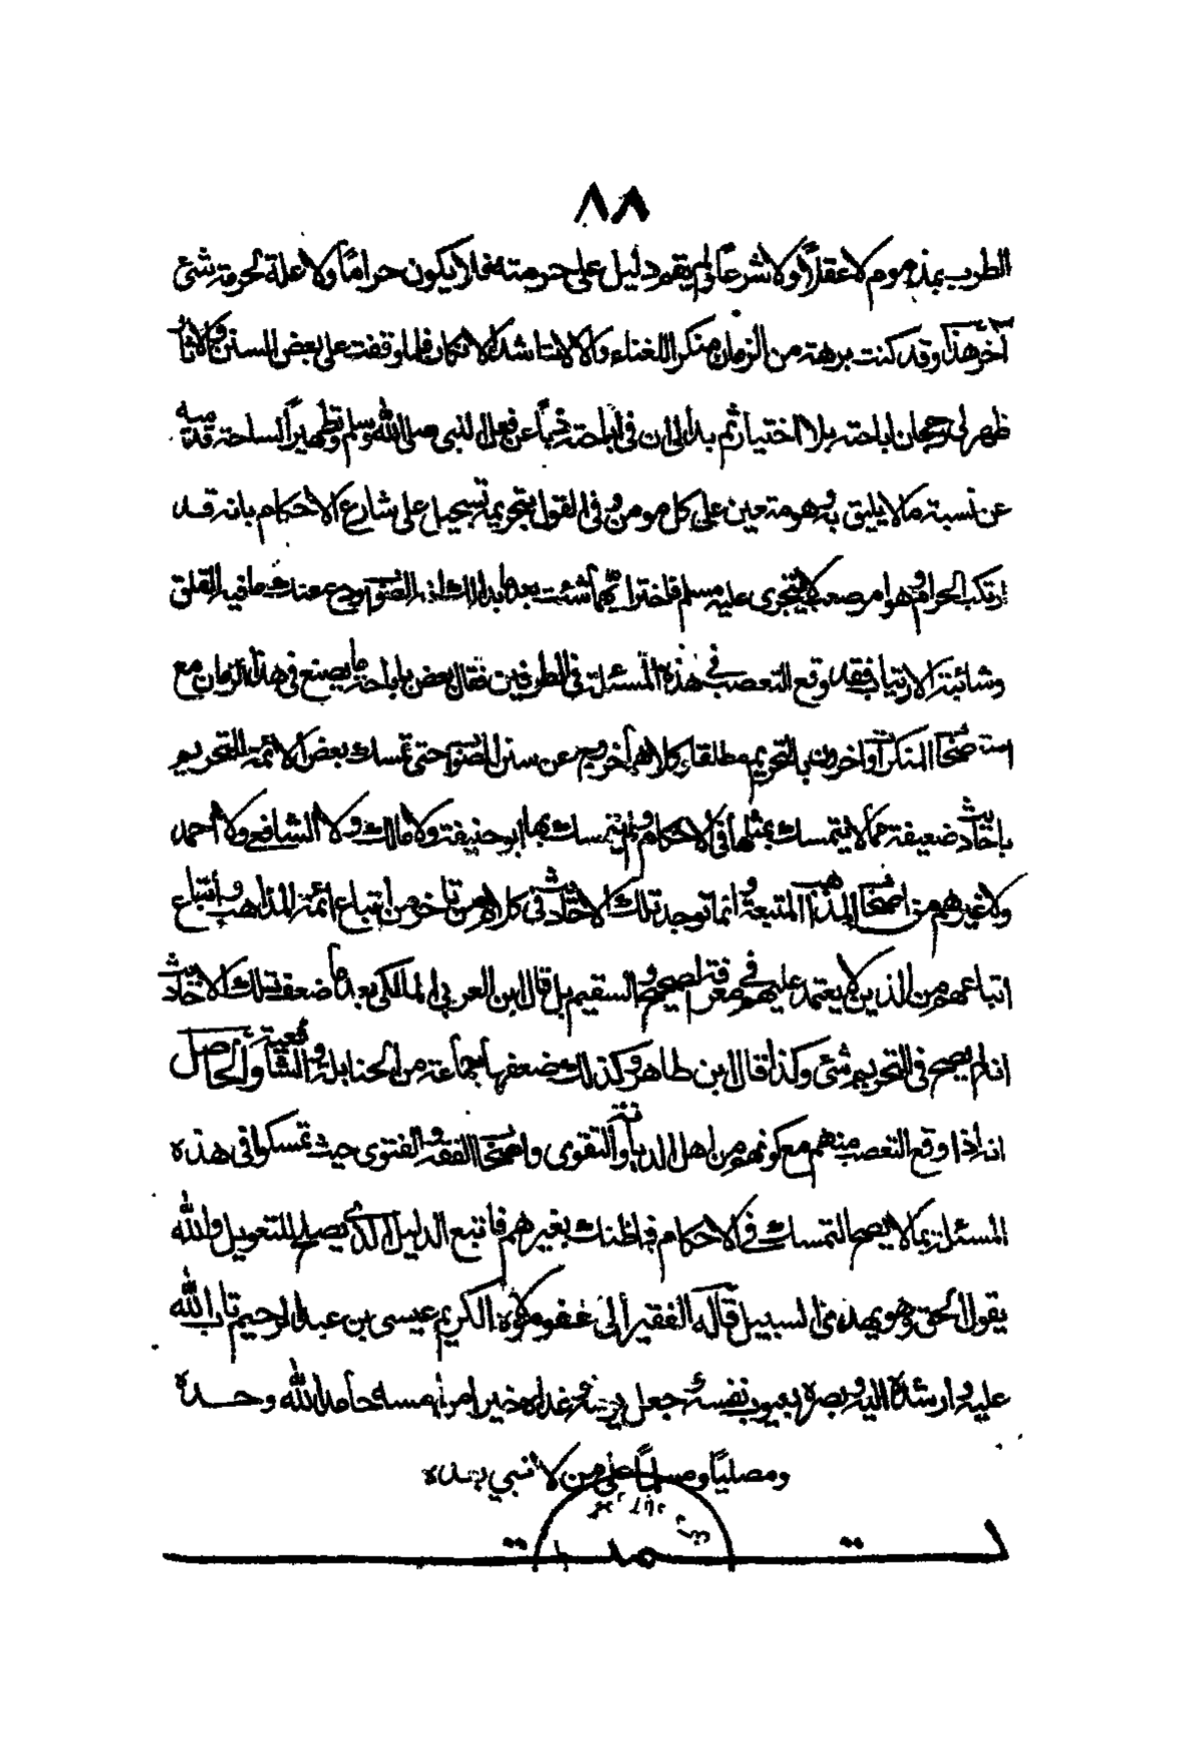 ٨٨
الطرب بمذموم لا عقلاً ولا شرعاً ولم يقم دليل على حرمته فلا يكون حراماً ولا علة لحرمته شئ
آخر هذا وقد كنت برهة من الزمان منكرا للغناء والآلات اشد الانكار فلما وقفت على بعض السنن والآثار
ظهر لي رجحان اباحته بلا اختيار ثم بدا لي ان في اباحته ذباً عن فعل النبي صلى الله وسلم وتطهيراً لساحة قدسه
عن نسبة ما لا يليق به وهو متعين على كل مومن وفي القول بتحريمه تسجيل على شارع الاحكام بانه قد
ارتكب الحرام وهو امر صعب لا يتجرى عليه مسلم فاختر ايهما شئت بعد ما بدا لك الصواب ودع عنك ما فيه القلق
وشائبة الارتياب فقد وقع التعصب في هذه المسئلة في الطرفين فقال بعض باباحة ما يصنع في هذا الزمان مع
المنكرات وآخرون بالتحريم مطلقا وكلاهما خروج عن سنن الصواب حتى تمسك بعض الائمة للتحريم
باحاديث ضعيفة مما لا يتمسك بمثلها في الاحكام ولم يتمسك بها ابو حنيفة ولا مالك ولا الشافعي ولا احمد
ولا غيرهم من اصحاب المذاهب المتبعة وانما توجد تلك الاحاديث في كلام من تاخر من اتباع ائمة المذاهب واتباع
اتباعهم من الذين لا يعتمد عليهم في معرفة الصحيح والسقيم بل قال ابن العربي المالكي بعد ما ضعف تلك الاحاديث
انه لم يصح في التحريم شئ وكذا قال ابن طاهر وكذلك ضعفها جماعة من الحنابلة والشافعية والحاصل
انه اذا وقع التعصب منهم مع كونهم من اهل الديانة والتقوى واصحاب الفقه والفتوى حيث تمسكوا في هذه
المسئلة بما لا يصح التمسك في الاحكام فما ظنك بغيرهم فاتبع الدليل الذي يصلح للتعويل والله
يقول الحق وهو يهدي السبيل قاله الفقير الى عفو مولاه الكريم عيسى بن عبد الرحيم تاب الله
عليه وارشده اليه وبصره بعيوب نفسه وجعل غده خيرا من امسه حامدا لله وحده
ومصلياً ومسلماً على من لا نبي بعده
تمت